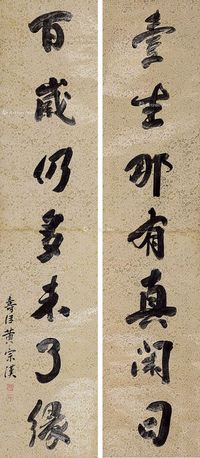 壹生那有真閒日
百歲仍多未了緣
壽臣黃宗漢